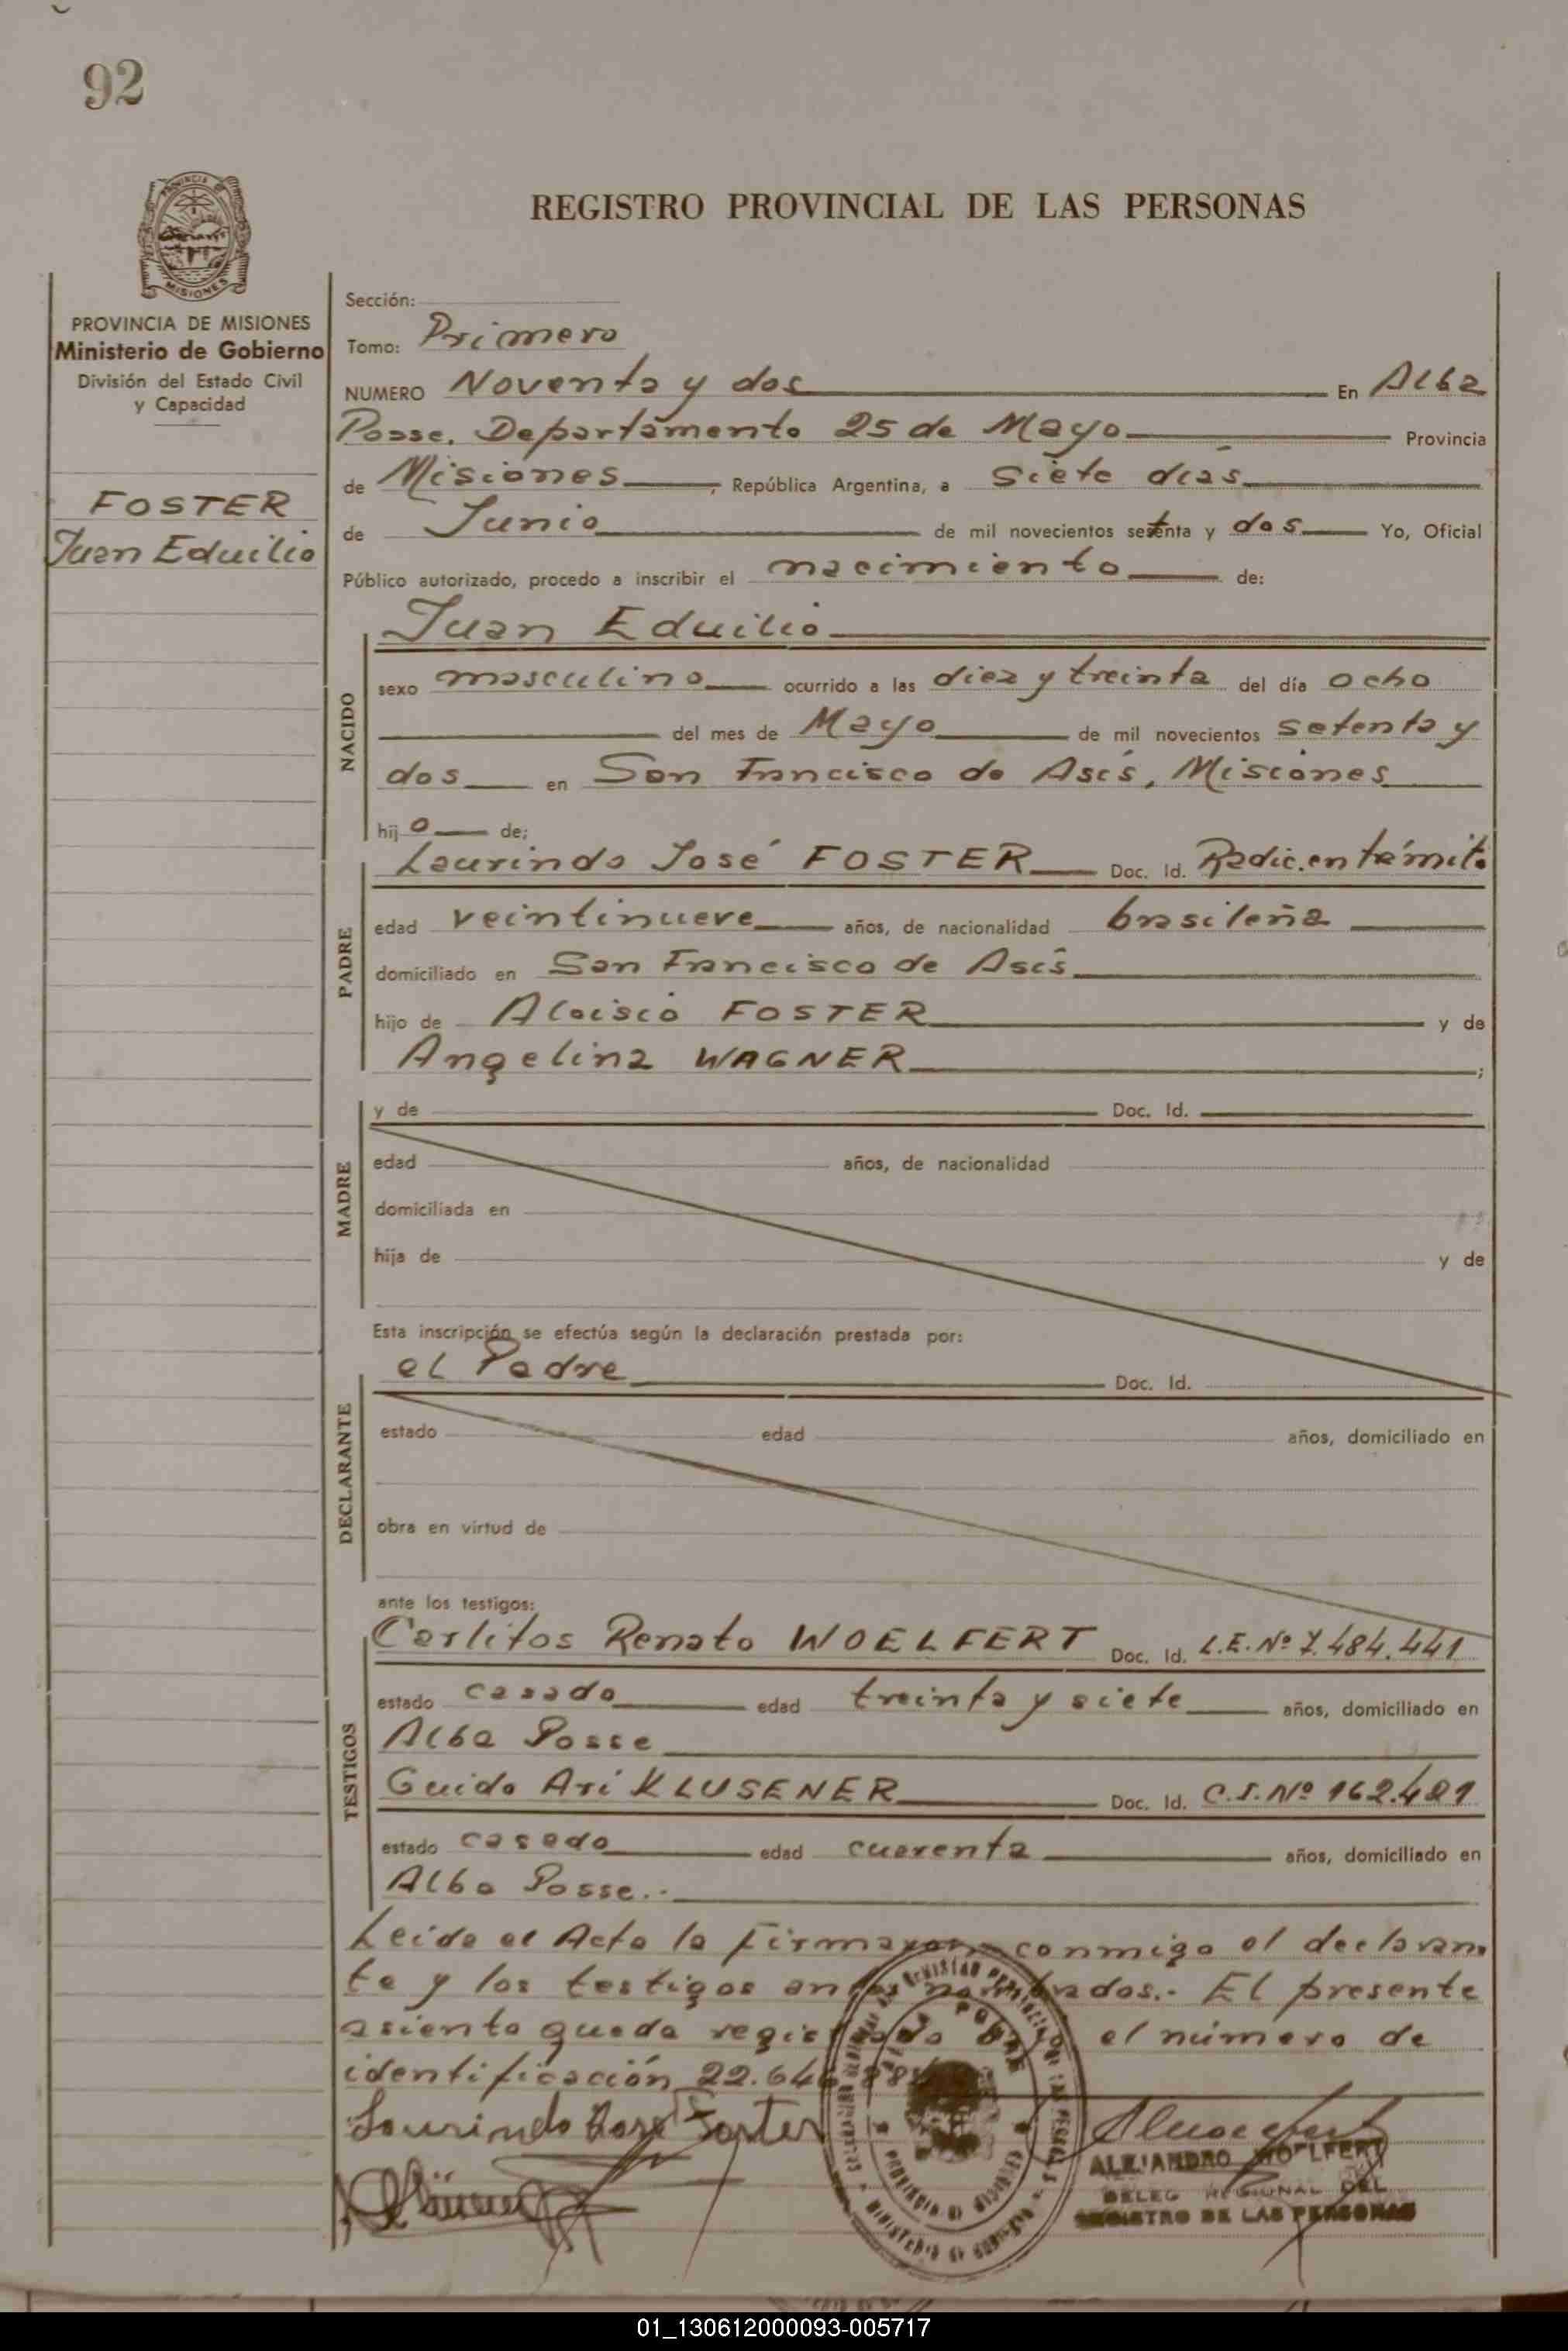 92
REGISTRO PROVINCIAL DE LAS PERSONAS
PROVINCIA DE MISIONES
Ministerio de Gobierno
División del Estado Civil
y Capacidad
FOSTER
Juan Eduilio
Sección:
Tomo: Primero
NUMERO Noventa y dos En Alba
Posse. Departamento 25 de Mayo Provincia
de Misiones, República Argentina, a siete días
de Junio de mil novecientos setenta y dos Yo, Oficial
Público autorizado, procedo a inscribir el nacimiento de:
NACIDO
Juan Eduilio
sexo masculino ocurrido a las diez y treinta del día ocho
del mes de Mayo de mil novecientos setenta y
dos en San Francisco de Asís, Misiones
hijo de;
PADRE
Laurindo José FOSTER Doc. Id. Radic. en trámite
edad veintinueve años, de nacionalidad brasileña
domiciliado en San Francisco de Asís
hijo de Aloisio FOSTER y de
Angelina WAGNER;
MADRE
y de Doc. Id.
edad años, de nacionalidad
domiciliada en
hija de y de
Esta inscripción se efectúa según la declaración prestada por:
DECLARANTE
el Padre Doc. Id.
estado edad años, domiciliado en
obra en virtud de
ante los testigos:
TESTIGOS
Carlitos Renato WOELFERT Doc. Id. L.E. Nº 7.484.441
estado casado edad treinta y siete años, domiciliado en
Alba Posse
Guido Ari KLUSENER Doc. Id. C.I. Nº 162.481
estado casado edad cuarenta años, domiciliado en
Alba Posse.-
Leida el Acta la firmaron conmigo el declaran
te y los testigos antes nombrados.- El presente
asiento queda registrado bajo el número de
identificación 22.646
Laurindo José Foster
ALEJANDRO WOELFERT
DELEG REGIONAL DEL
REGISTRO DE LAS PERSONAS
01_130612000093-005717